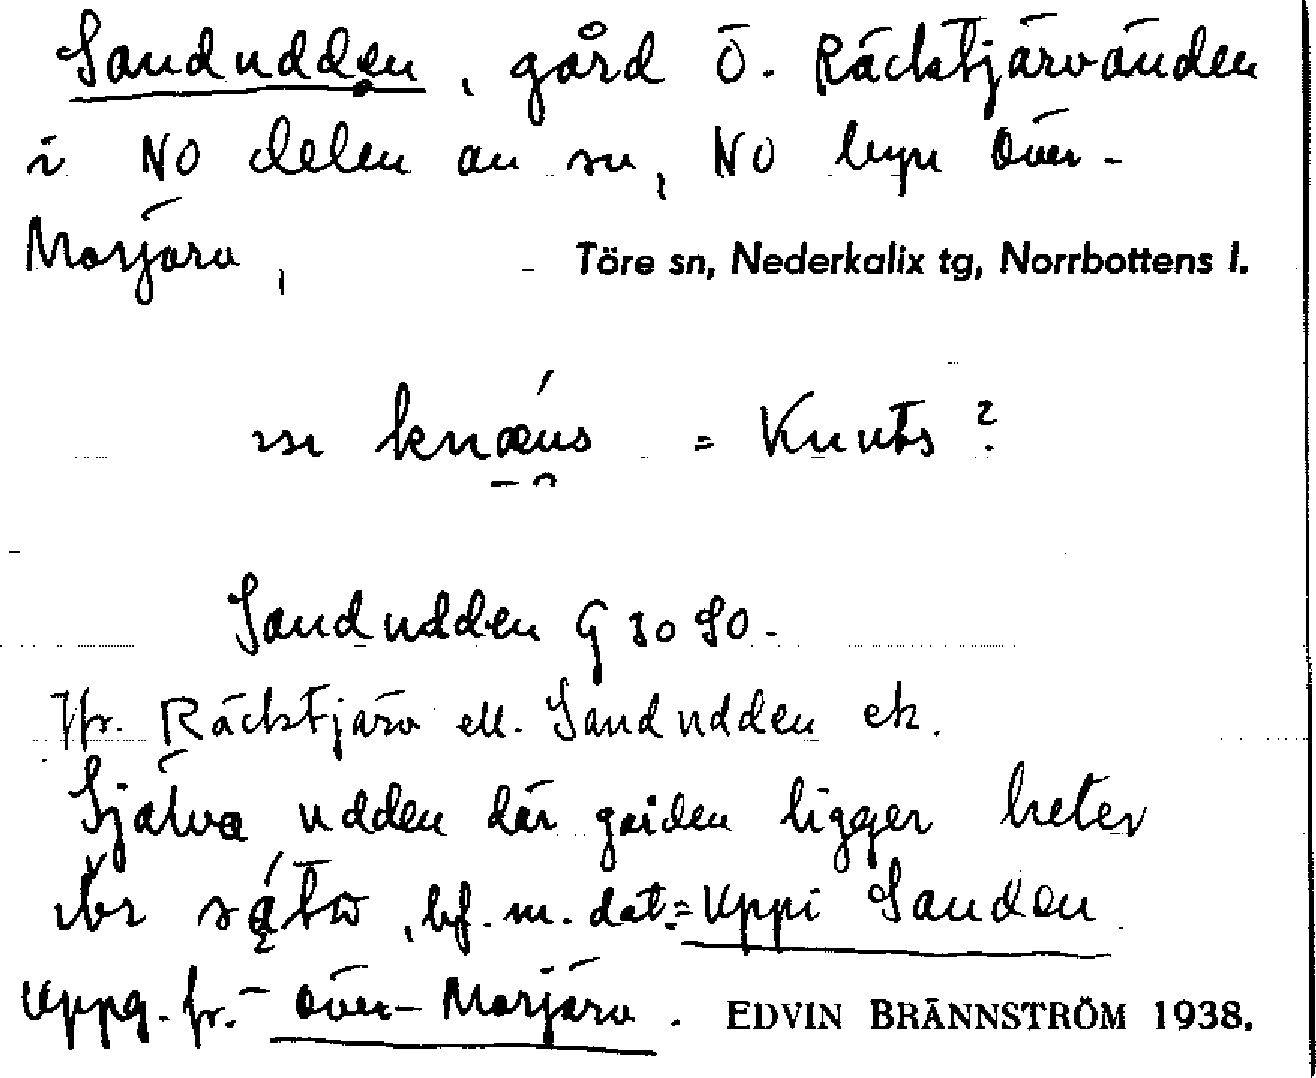 Sandudden, gård Ö. Räcktjärvänden
i NO delen av sn, NO byn Över-
Morjärv,
Töre sn, Nederkalix tg, Norrbottens l.
= Knuts ?
Sandudden G 30 SO.
Jfr. Räcktjärv ell. Sandudden ek.
Själva udden där gården ligger heter
, bf. m. dat. = Uppi Sanden
Uppg. fr. Över-Morjärv. EDVIN BRÄNNSTRÖM 1938.